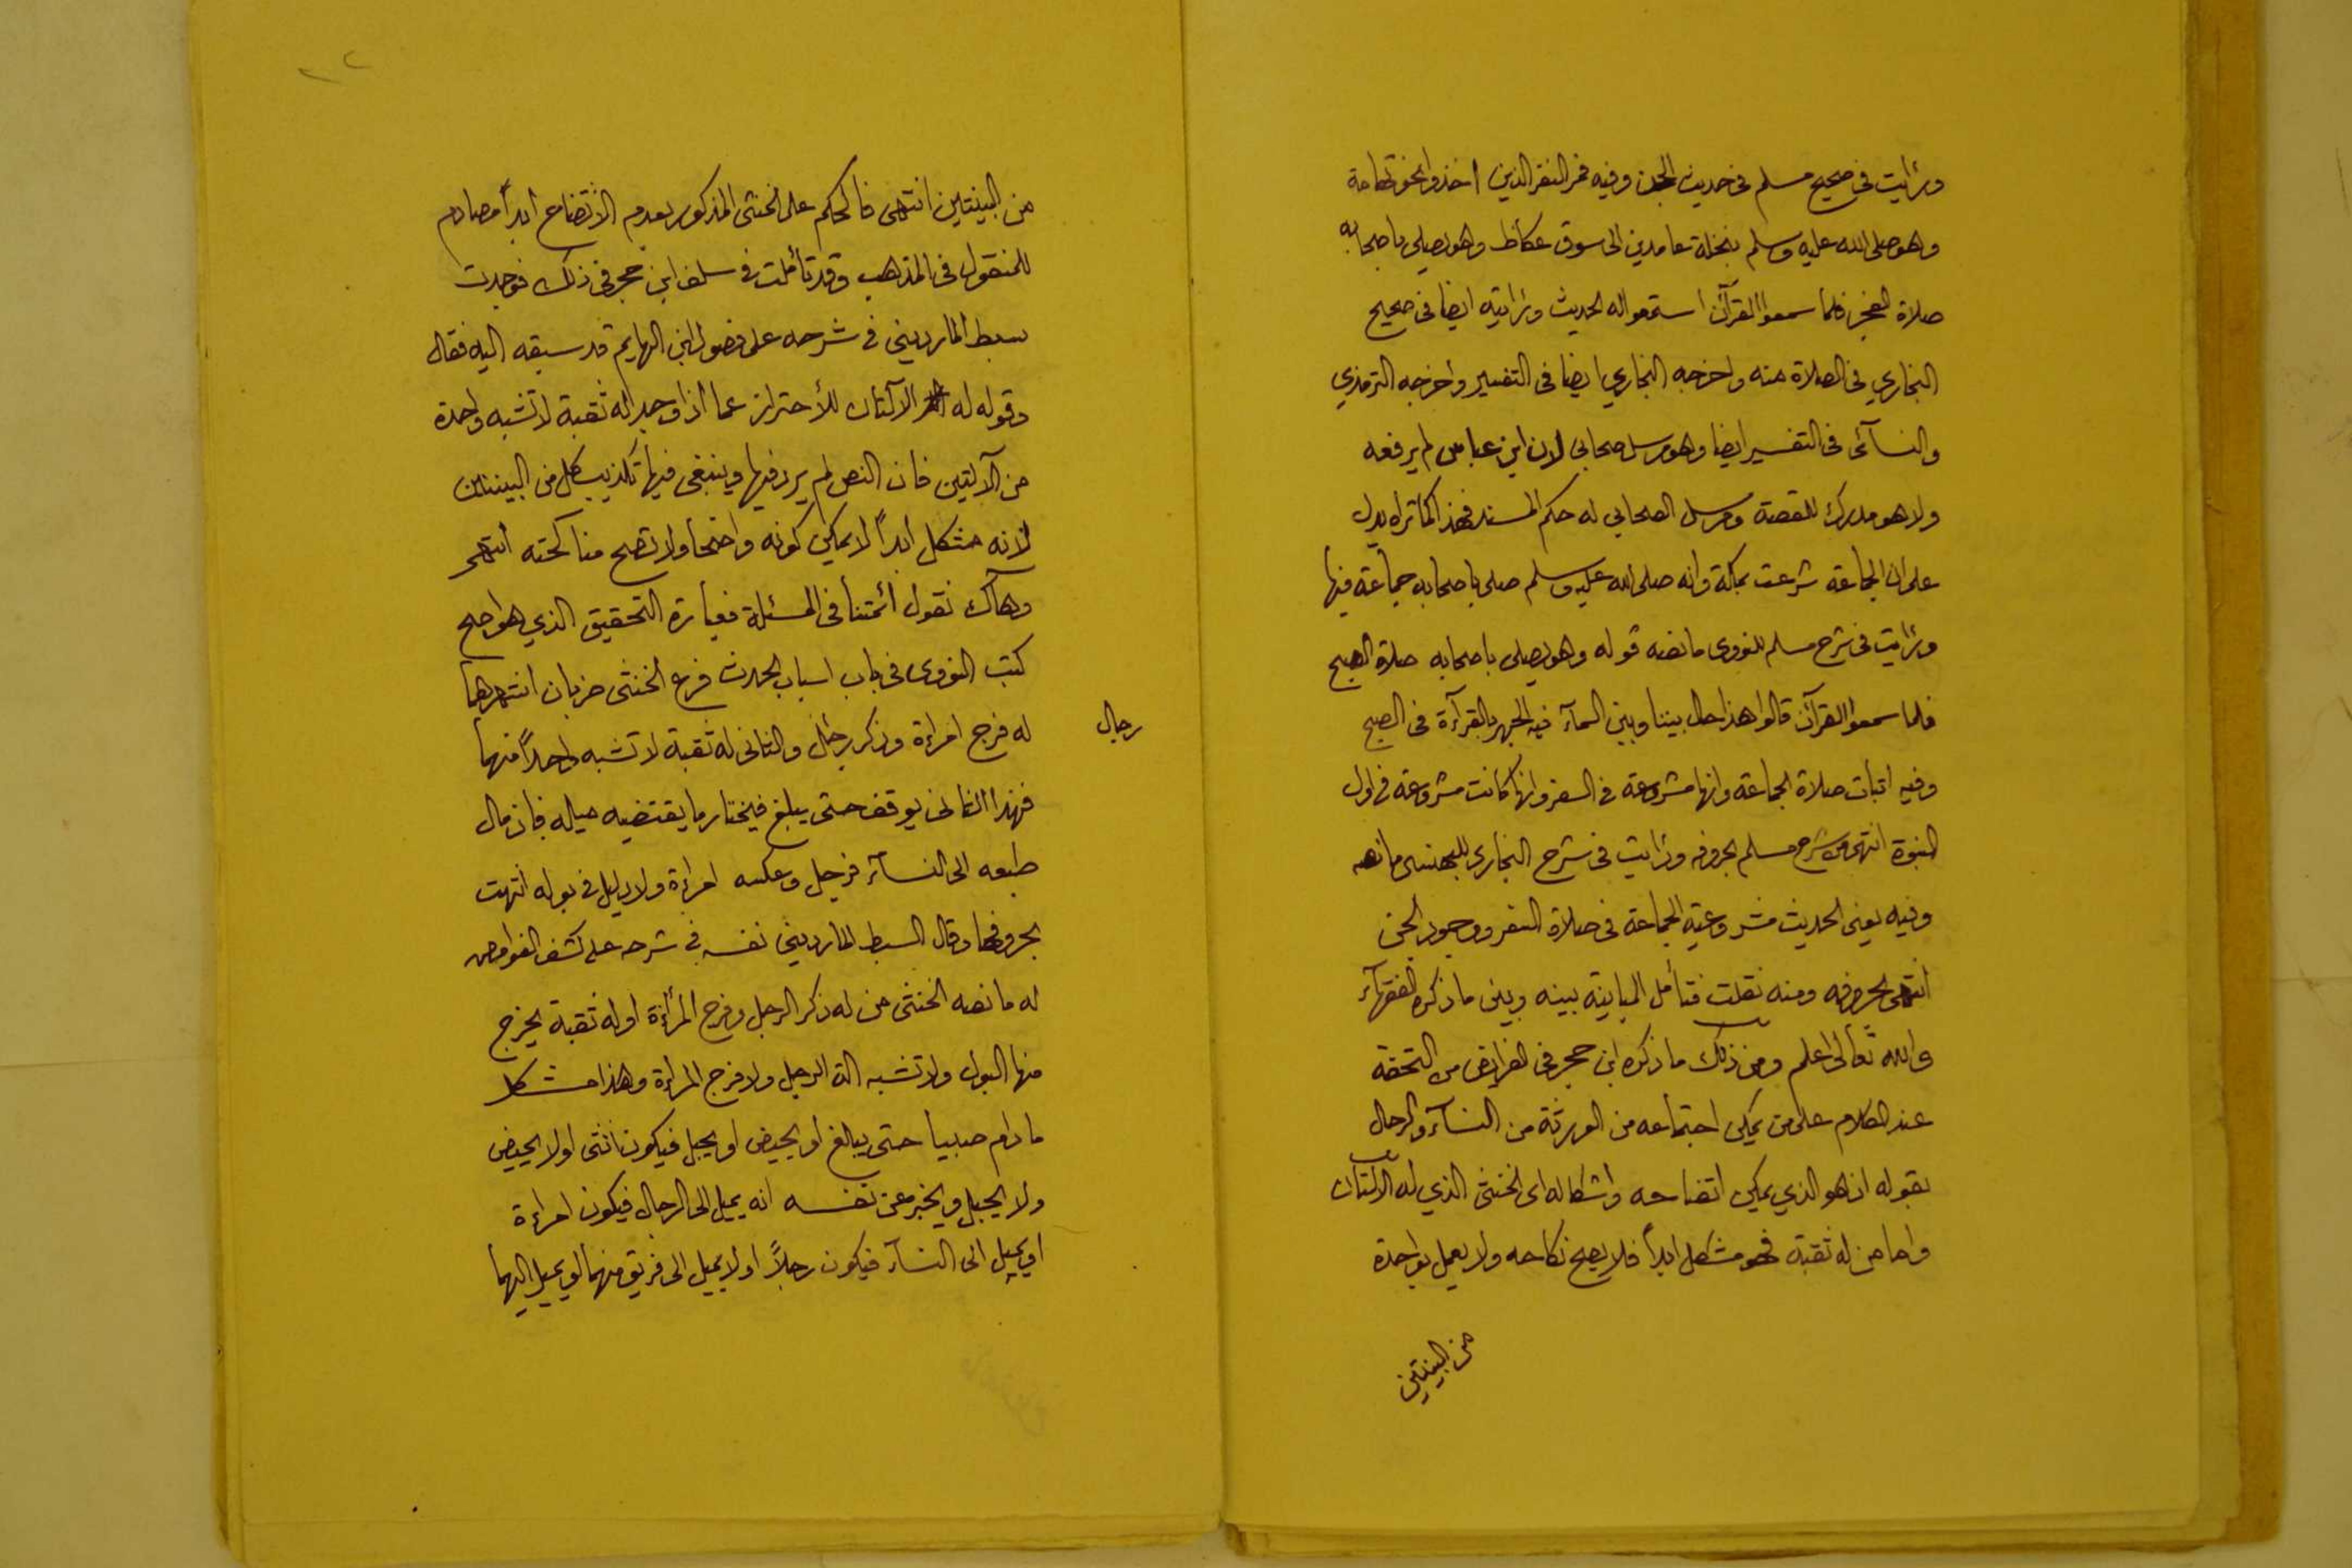 ورايت في صحيح مسلم في حديث الجن وفيه فمر النفر الذين اخذوا نحو تهامة
وهو صلى الله عليه وسلم بنخلة عامدين الى سوق عكاظ وهو يصلي باصحابه
صلاة الفجر فلما سمعوا القرآن استمعوا له الحديث ورايته ايضا في صحيح
البخاري في الصلاة منه واخرجه البخاري ايضا في التفسير واخرجه الترمذي
والنسآئى في التفسير ايضا وهو مرسل صحابي لان ابن عباس لم يرفعه
ولا هو مدرك للقصة ومرسل الصحابي له حكم المسند فهذا كما تراه يدل
على ان الجماعة شرعت بمكة وانه صلى الله عليه وسلم صلى باصحابه جماعة فيها
ورايت في شرح مسلم للنووى ما نصه قوله وهو يصلى باصحابه صلاة الصبح
فلما سمعوا القرآن قالوا هذا حال بيننا وبين السمآء فيه الجهر بالقرآءة في الصبح
وفيه اثبات صلاة الجماعة وانها مشروعة في السفر وانها كانت مشروعة في اول
النبوة انتهى من شرح مسلم بحروفه ورايت في شرح البخاري للبهنسى ما نصه
وفيه يعنى الحديث مشروعية الجماعة في صلاة السفر ووجود الجن
انتهى بحروفه ومنه نقلت فتأمل المباينة بينه وبين ما ذكره الفقهآء
والله تعالى اعلم ومن ذلك ما ذكره ابن حجر في الفرايض من التحفة
عند الكلام على من يمكن اجتماعه من الورثة من النسآء والرجال
بقوله اذ هو الذي يمكن اتضاحه واشكاله اى الخنثى الذي له الآلتان
واما من له ثقبة فهو مشكل ابداً فلا يصح نكاحه ولا يعمل بواحدة
من البينتين
من البينتين انتهى فالحكم على الخنثى المذكور بعدم الاتضاح ابداً مصادم
للمنقول في المذهب وقد تأملت في سلف ابن حجر في ذلك فوجدت
سبط المارديني في شرحه على فصول ابن الهايم قد سبقه اليه فقال
وقوله له الآلتان للأحتراز عما اذا وجد له ثقبة لا تشبه واحدة
من الآلتين فان النص لم يرد فيها وينبغى فيها تكذيب كل من البينتين
لانه مشكل ابداً لا يمكن كونه واضحاً ولا تصح مناكحته انتهى
وهاك نقول أئمتنا في المسئلة فعبارة التحقيق الذي هو اصح
كتب النووى في باب اسباب الحدث فرع الخنثى ضربان اشهرهما
له فرج امراءة وذكر رجال والثانى له ثقبة لا تشبه واحداً منهما
رجال
فهذا الثانى يوقف حتى يبلغ فيختار ما يقتضيه ميله فان مال
طبعه الى النسآء فرجل وعكسه امراءة ولا دليل في بوله انتهت
بحروفها وقال السبط المارديني نفسه في شرحه على كشف الغوامض
له ما نصه الخنثى من له ذكر الرجل وفرج المرأة او له ثقبة يخرج
منها البول ولا تشبه الة الرجل ولا فرج المراءة وهذا مشكل
ما دام صبيا حتى يبالغ او يحيض او يحبل فيكون انثى اولا يحيض
ولا يحبل ويخبر عن نفسه انه يميل الى الرجال فيكون امراءة
او يميل الى النسآء فيكون رجلاً اولا يميل الى فريق منهما او يميل اليهما